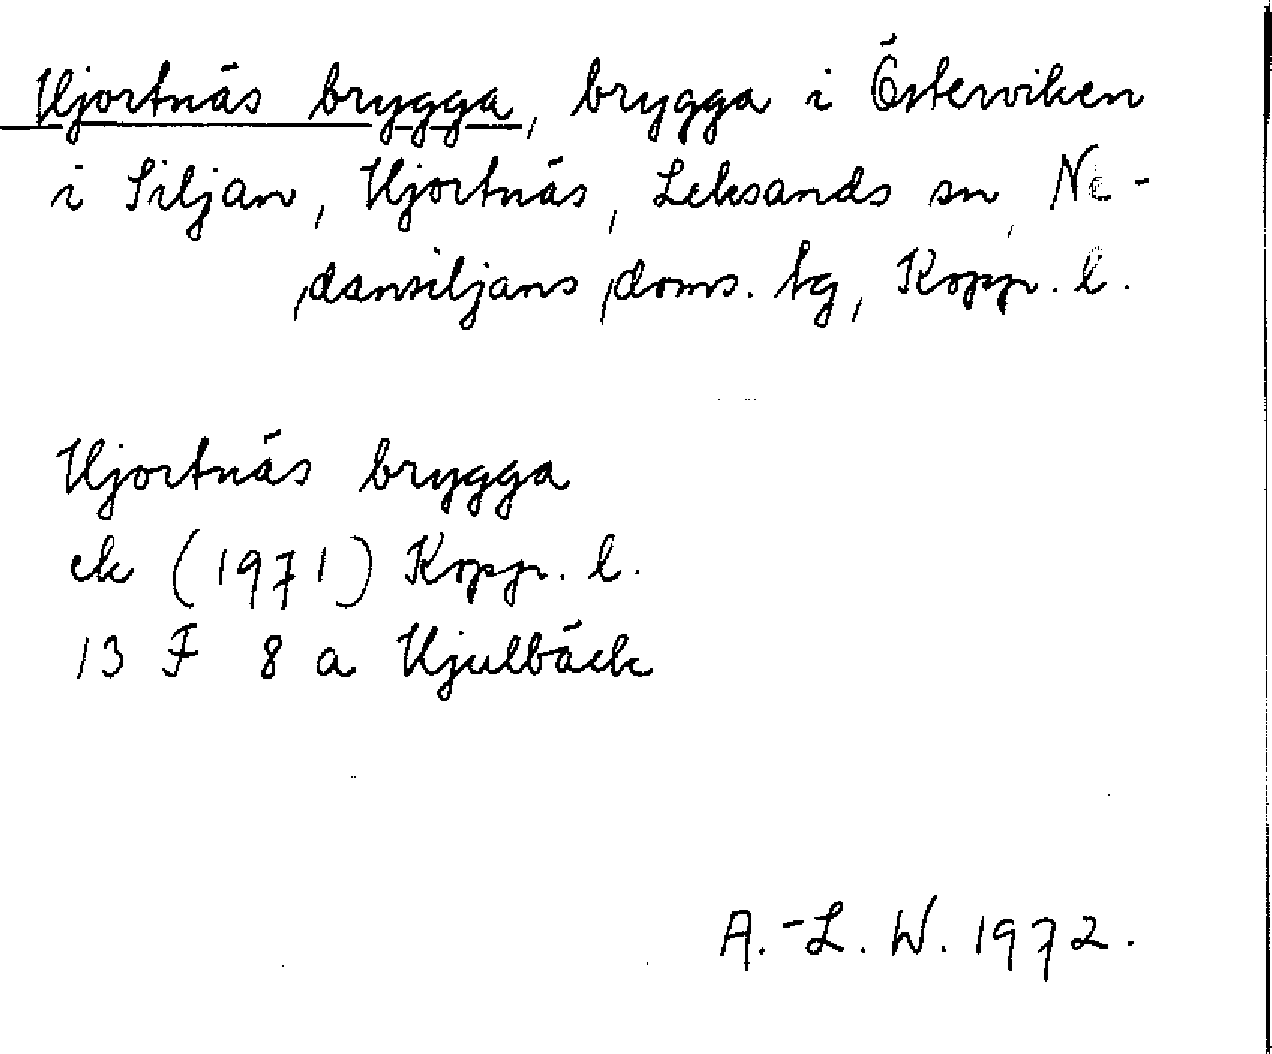 Hjortnäs brygga, brygga i Österviken
i Siljan, Hjortnäs, Leksands sn, Ne-
dansiljans doms. tg, Kopp. l.
Hjortnäs brygga
ek (1971) Kopp. l.
13 F 8 a Hjulbäck
A.-L. W. 1972.